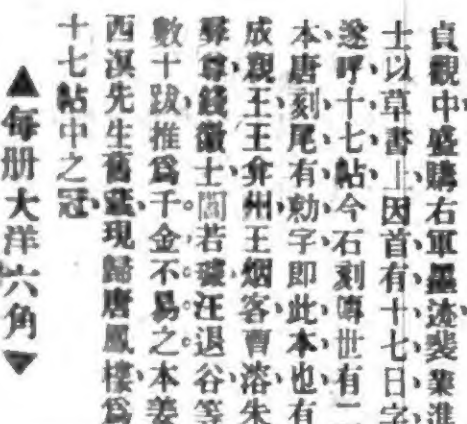 貞觀中盛購右軍墨迹裴業進
士以草書上因首有十七日字、
遂呼、十七、帖、今石刻傳世有二
本、唐刻、尾有、勅字、即此、本、也、有
成親王、王弇州、王烟客、曹溶、朱
彝尊、錢徵士、閻若璩、汪退谷、等
數十跋、推爲千。金。不。易。之。本姜
西溟先生舊藏、現歸唐鳳樓、爲
十七帖中之冠、
▲每册大洋六角▼